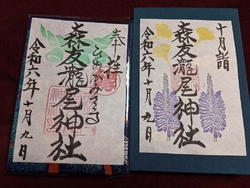 奉拝
森友瀧尾神社
令和六年十月九日
十月詣
森友瀧尾神社
令和六年十月九日